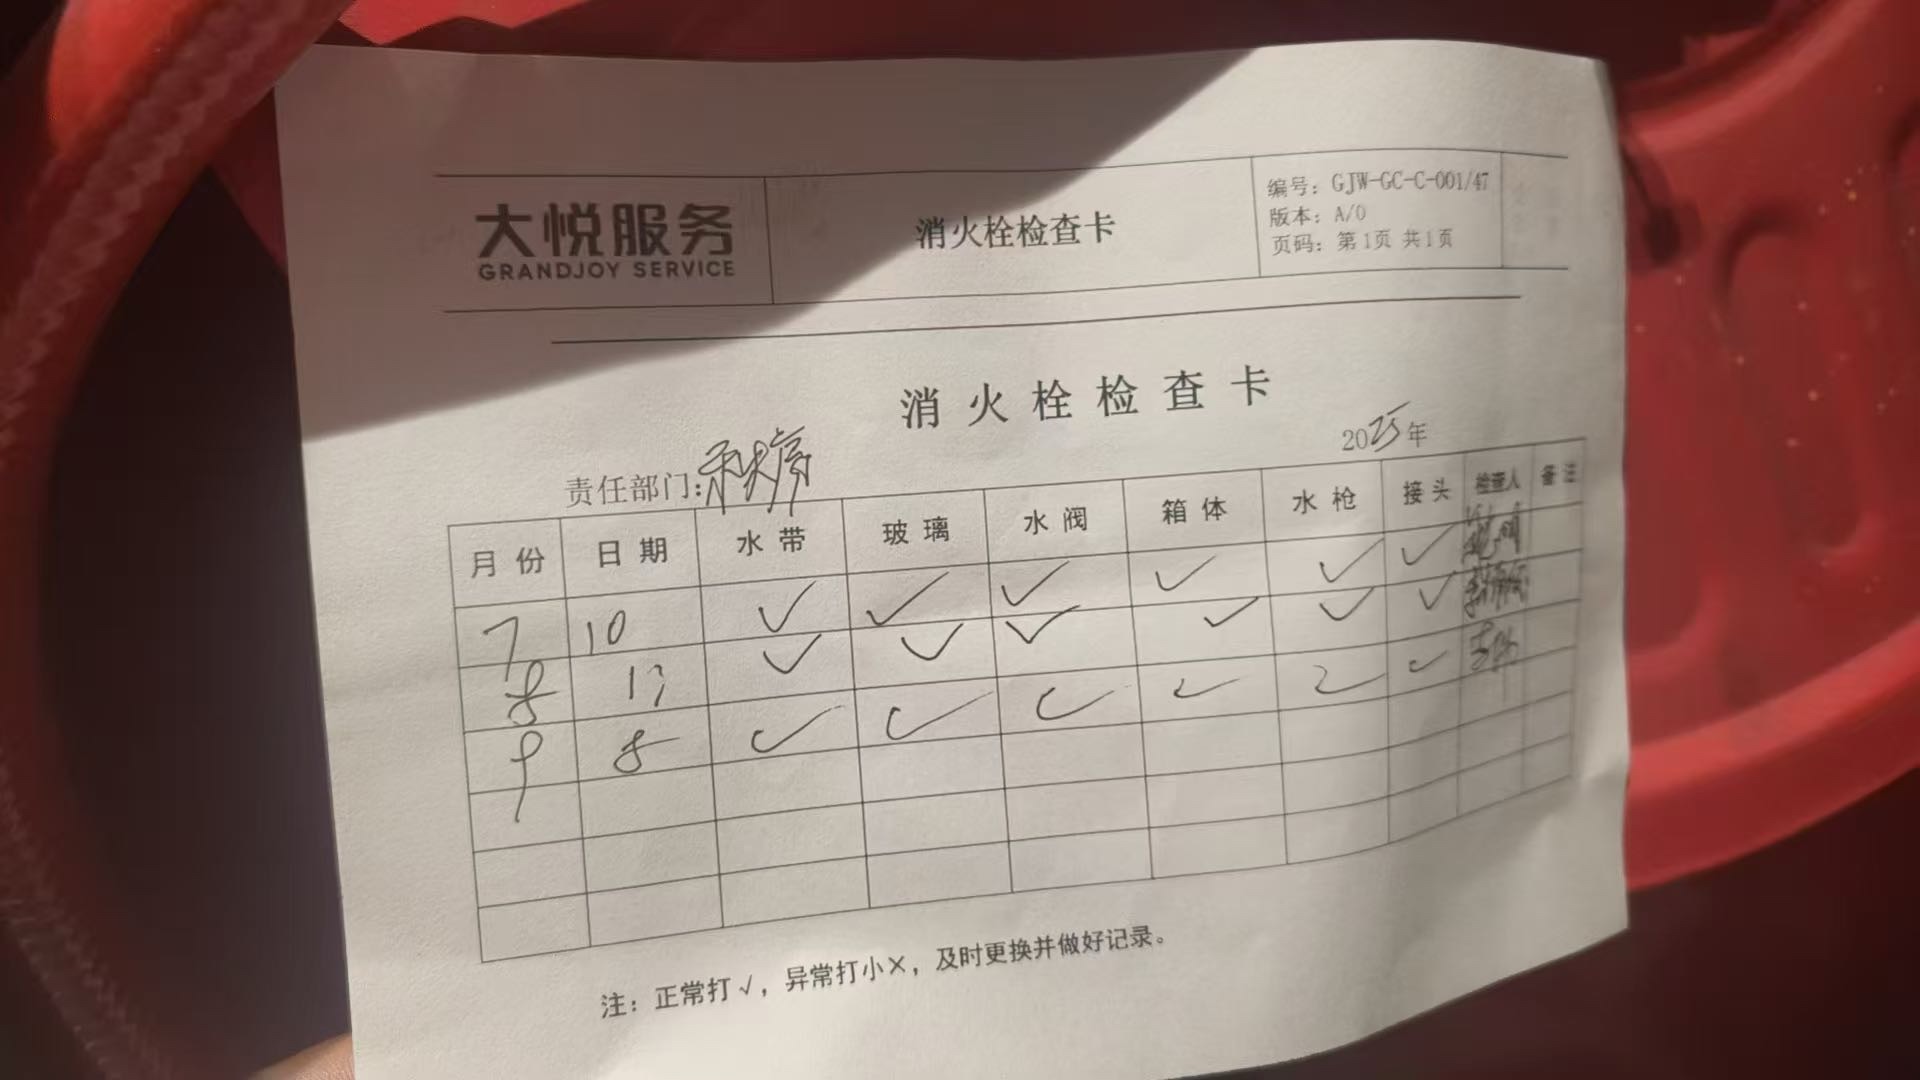 大悦服务
GRANDJOY SERVICE
消火栓检查卡
编号：GJW-GC-C-001/47
版本：A/0
页码：第1页 共1页
消火栓检查卡
2025年
责任部门：
月份 日期 水带 玻璃 水阀 箱体 水枪 接头 检查人 备注
7 10 ✓ ✓ ✓ ✓ ✓ ✓
8 13 ✓ ✓ ✓ ✓ ✓ ✓
9 8 ✓ ✓ ✓ ✓ ✓ ✓
注：正常打√，异常打小×，及时更换并做好记录。